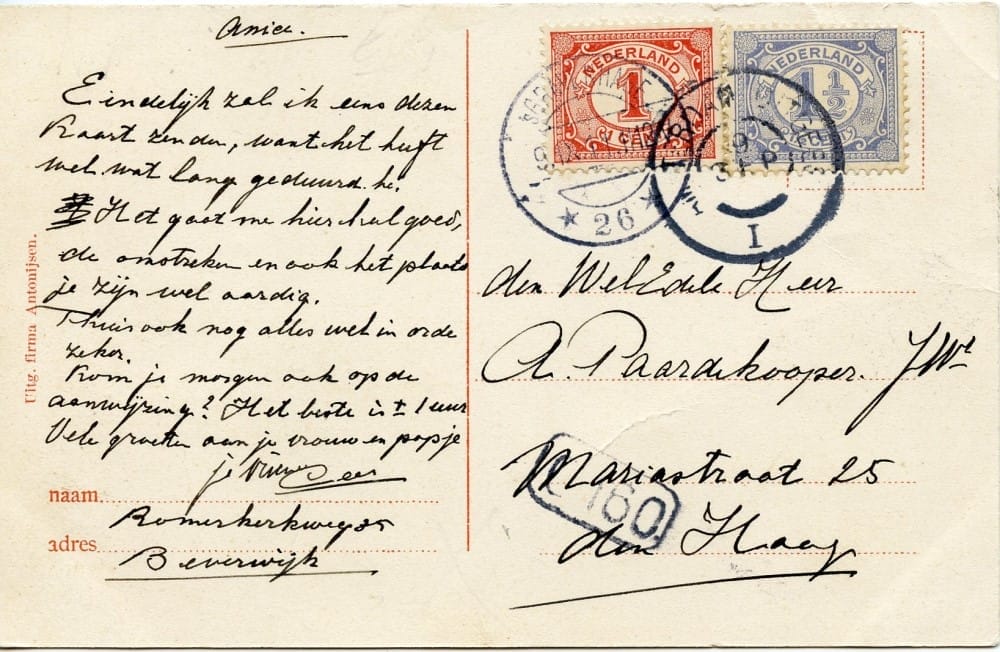 Eindelijk zal ik eens dezen
Kaart zenden, want het heeft
wel wat lang geduurd hè.
Het gaat me hier heel goed,
de omstreken en ook het plaats
je zijn wel aardig.
Thuis ook nog alles wel in orde
zeker.
Kom je morgen ook op de
aanwijzing? Het beste is ± 1 uur
Vele groeten aan je vrouw en popje
je
naam
Romerkerkweg 25
adres
Beverwijk
Uitg. firma Antonijsen.
NEDERLAND
1
CENT
NEDERLAND
1½
CENT
26
I
den WelEdele Heer
A. Paardekooper. JWz
Mariastraat 25
160
den Haag